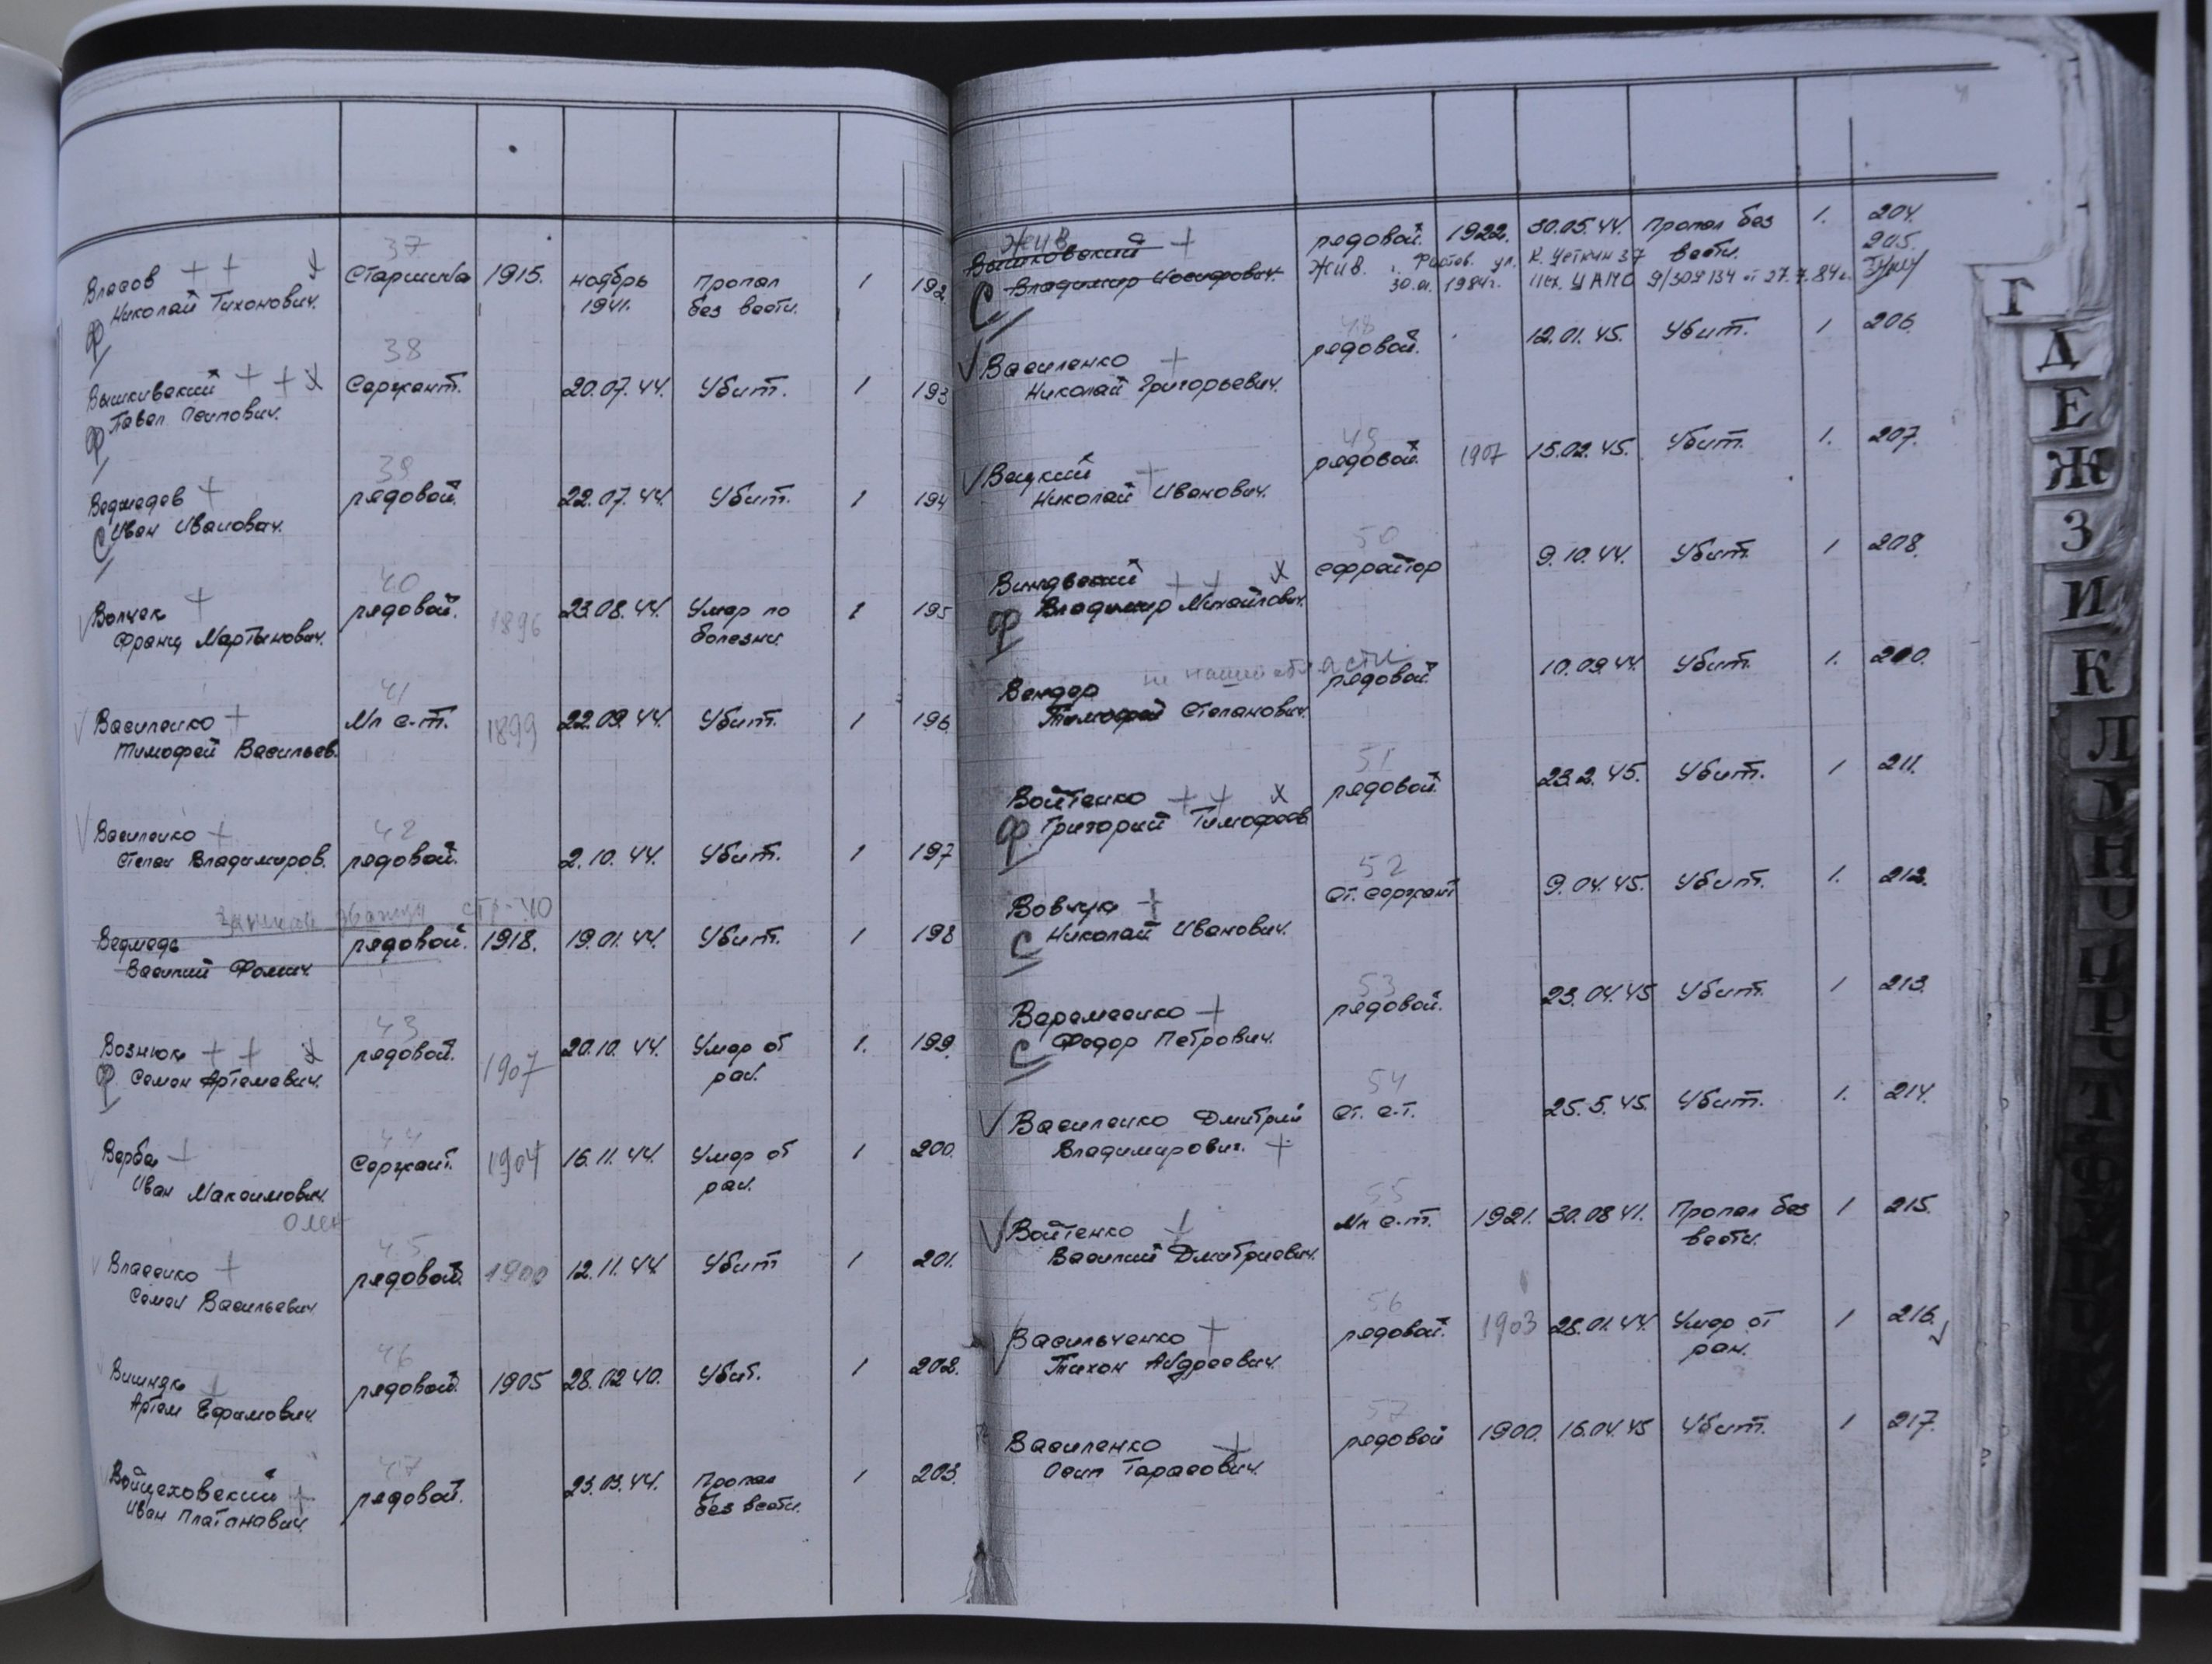 37
Власов + + х Старшина 1915. ноябрь Пропал 1 192
Николай Тихонович. 1941. без вести.
Ф
38
Вышкивский + + х Сержант. 20.07.44. Убит. 1 193
Павел Осипович.
Ф
39
Ведмедев + рядовой. 22.07.44. Убит. 1 194
С Иван Иванович.
40
√ Волчек + рядовой. 1896 23.08.44. Умер по 1 195
Франц Мартынович. болезни.
41
√ Василенко + Мл с-т. 1899 22.09.44. Убит. 1 196
Тимофей Васильев.
42
√ Василенко +
Степан Владимиров. рядовой. 2.10.44. Убит. 1 197
стр-40
Ведмедь рядовой. 1918. 19.01.44. Убит. 1 198
Василий Фомич
43
Вознюк + + х рядовой. 1907 20.10.44. Умер от 1. 199.
Ф Семен Артемович. ран.
44
Верба + Сержант. 1904 16.11.44. Умер от 1 200.
Иван Максимович. ран.
45
√ Власенко + рядовой. 1900 12.11.44. Убит 1 201.
Семен Васильевич.
46
Вишняк + рядовой. 1905 28.02.40. Убит. 1 202.
Артем Ефимович.
47
Войцеховский + рядовой. 23.03.44. Пропал 1 203.
Иван Платонович. без вести.
4
Жив
Вышковский + рядовой. 1922. 30.05.44. Пропал без 1. 204.
вести. 205.
Владимир Иосифович. Жив. г. Фастов. ул. К. Цеткин 37
С 30.01. 1984г. Исх. ЦАМО 9/308134 от 27.7.84г.
48
√ Василенко + рядовой. 12.01.45. Убит. 1 206.
Николай Григорьевич.
49
√ Вецкий + рядовой. 1907 15.02.45. Убит. 1. 207.
Николай Иванович.
50
+ + х ефрейтор 9.10.44. Убит. 1 208.
Ф Владимир Михайлович.
не нашей области
Вендер рядовой. 10.09.44. Убит. 1. 210.
Тимофей Степанович.
51
Войтенко + + х рядовой. 23.2.45. Убит. 1 211.
Ф Григорий Тимофеев.
52
Вовчук + Ст. сержант 9.04.45. Убит. 1. 212.
С Николай Иванович.
53
Веремеенко + рядовой. 23.04.45 Убит. 1 213.
С Федор Петрович.
54
√ Василенко Дмитрий Ст. с-т. 25.5.45. Убит. 1. 214.
Владимирович. +
55
√ Войтенко + Мл с-т. 1921. 30.08.41. Пропал без 1 215.
Василий Дмитриевич. вести.
56
√ Васильченко + рядовой. 1903 28.01.44. Умер от 1 216. √
Тихон Андреевич. ран.
57
Василенко + рядовой 1900. 16.04.45 Убит. 1 217.
Осип Тарасович.
Г
Д
Е
Ж
З
И
К
Л
М
Н
О
П
Р
Т